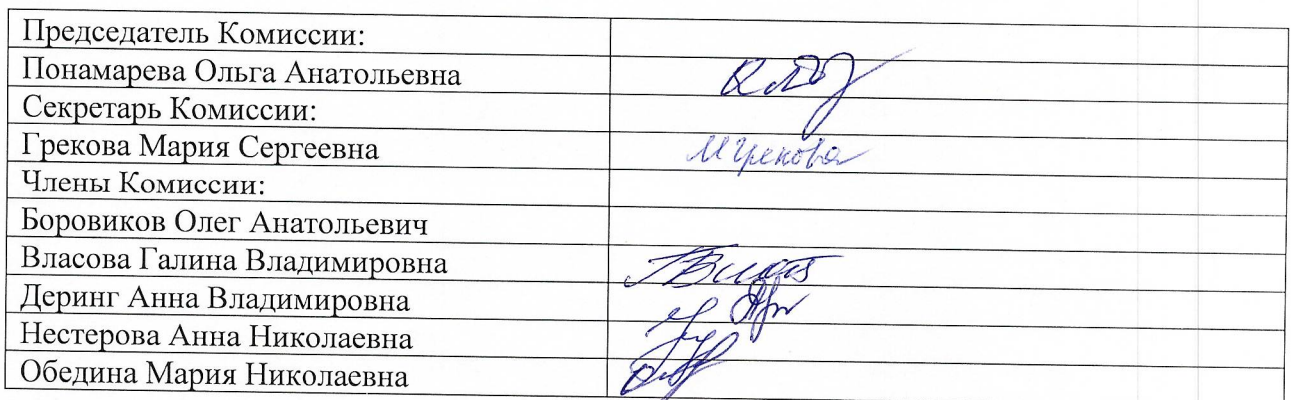 Председатель Комиссии:
Понамарева Ольга Анатольевна
Секретарь Комиссии:
Грекова Мария Сергеевна МГрекова
Члены Комиссии:
Боровиков Олег Анатольевич
Власова Галина Владимировна
Деринг Анна Владимировна
Нестерова Анна Николаевна
Обедина Мария Николаевна